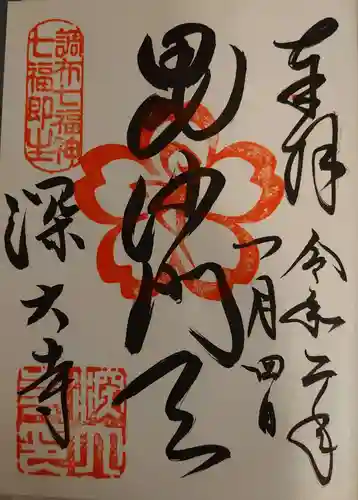 奉拝
令和二年
一月四日
毘沙門天
深大寺
調布七福神
七福即生